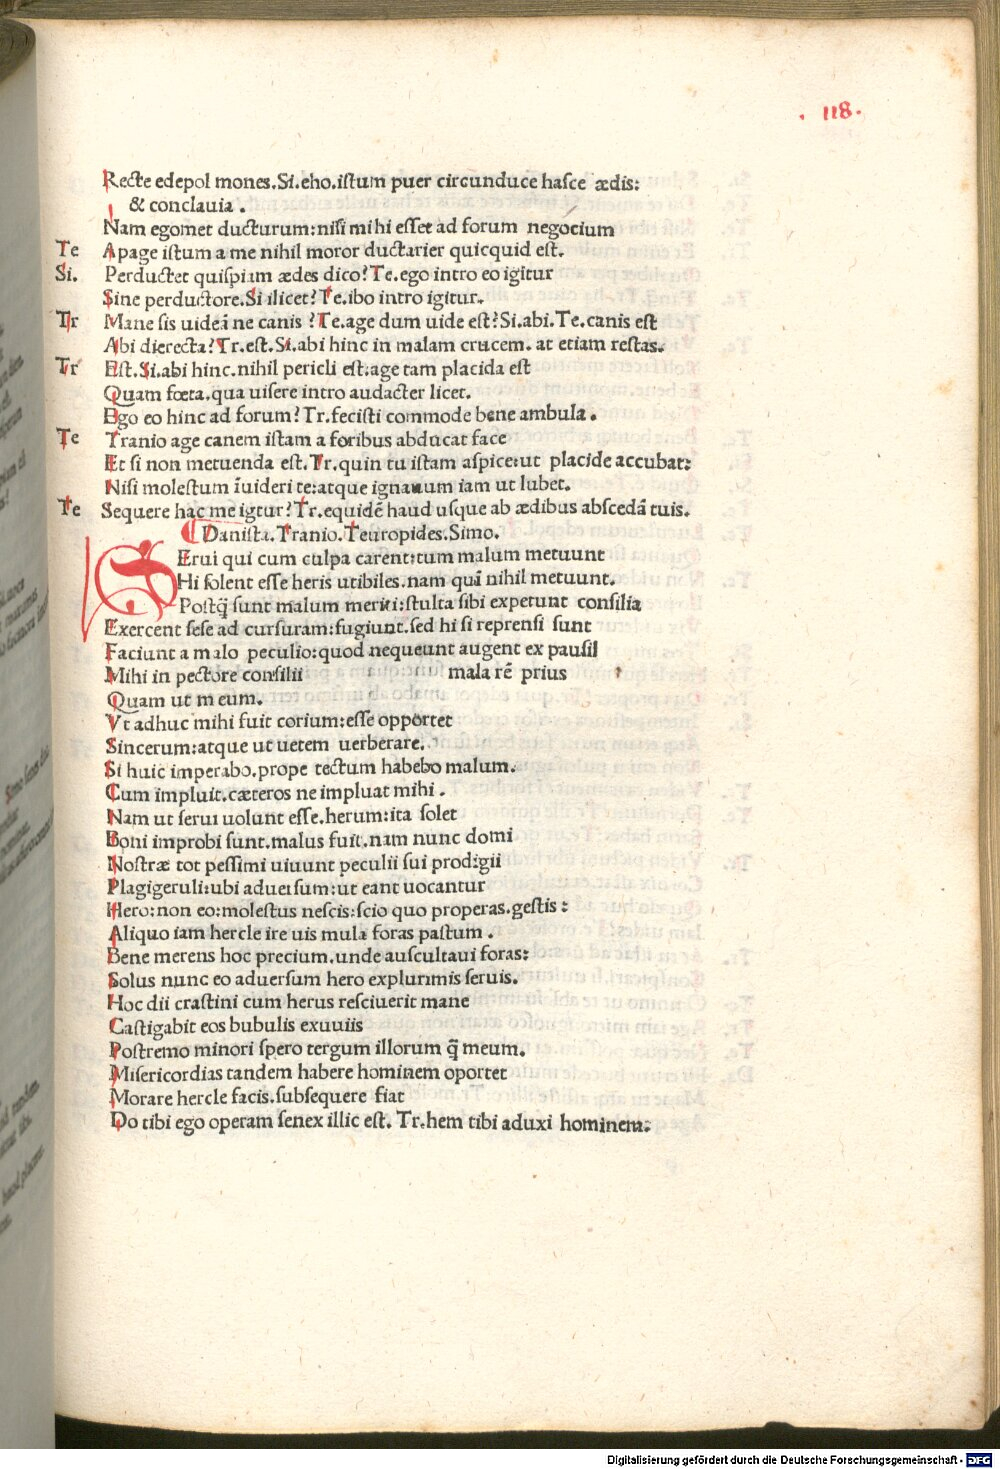 . 118.
Recte edepol mones.Si.eho.istum puer circunduce hasce ædis:
& conclauia .
Nam egomet ducturum:nisi mihi esset ad forum negocium
Te Apage istum a me nihil moror ductarier quicquid est.
Si. Perductet quispiam ædes dico?Te.ego intro eo igitur
Sine perductore.Si ilicet?Te.ibo intro igitur.
Tr Mane sis uideã ne canis ?Te.age dum uide est?Si.abi.Te.canis est
Abi dierecta?Tr.est.Si.abi hinc in malam crucem. at etiam restas.
Tr Est.Si.abi hinc.nihil pericli est.age tam placida est
Quam fœta.qua uisere intro audacter licet.
Ego eo hinc ad forum?Tr.fecisti commode bene ambula .
Te Tranio age canem istam a foribus abducat face
Et si non metuenda est.Tr.quin tu istam aspice:ut placide accubat:
Nisi molestum ĩuideri te:atque ignauum iam ut lubet.
Te Sequere hac me igtur?Tr.equidẽ haud usque ab ædibus abscedã tuis.
Danista.Tranio.Teuropides.Simo.
SErui qui cum culpa carent:tum malum metuunt
Hi solent esse heris utibiles.nam qui nihil metuunt.
Postq̃ sunt malum meriti:stulta sibi expetunt consilia
Exercent sese ad cursuram:fugiunt.sed hi si reprensi sunt
Faciunt a malo peculio:quod nequeunt augent ex pausil
Mihi in pectore consilii mala rẽ prius
Quam ut meum.
Vt adhuc mihi fuit corium:esse opportet
Sincerum:atque ut uetem uerberare.
Si huic imperabo.prope tectum habebo malum.
Cum impluit.cæteros ne impluat mihi .
Nam ut serui uolunt esse.herum:ita solet
Boni improbi sunt.malus fuit.nam nunc domi
Nostræ tot pessimi uiuunt peculii sui prodigii
Plagigeruli:ubi aduersum:ut eant uocantur
Hero:non eo:molestus nescis:scio quo properas.gestis :
Aliquo iam hercle ire uis mula foras pastum .
Bene merens hoc precium.unde auscultaui foras:
Solus nunc eo aduersum hero explurimis seruis.
Hoc dii crastini cum herus resciuerit mane
Castigabit eos bubulis exuuiis
Postremo minori spero tergum illorum q̃ meum.
Misericordias tandem habere hominem oportet
Morare hercle facis.subsequere fiat
Do tibi ego operam senex illic est. Tr.hem tibi aduxi hominem.
Digitalisierung gefördert durch die Deutsche Forschungsgemeinschaft - DFG